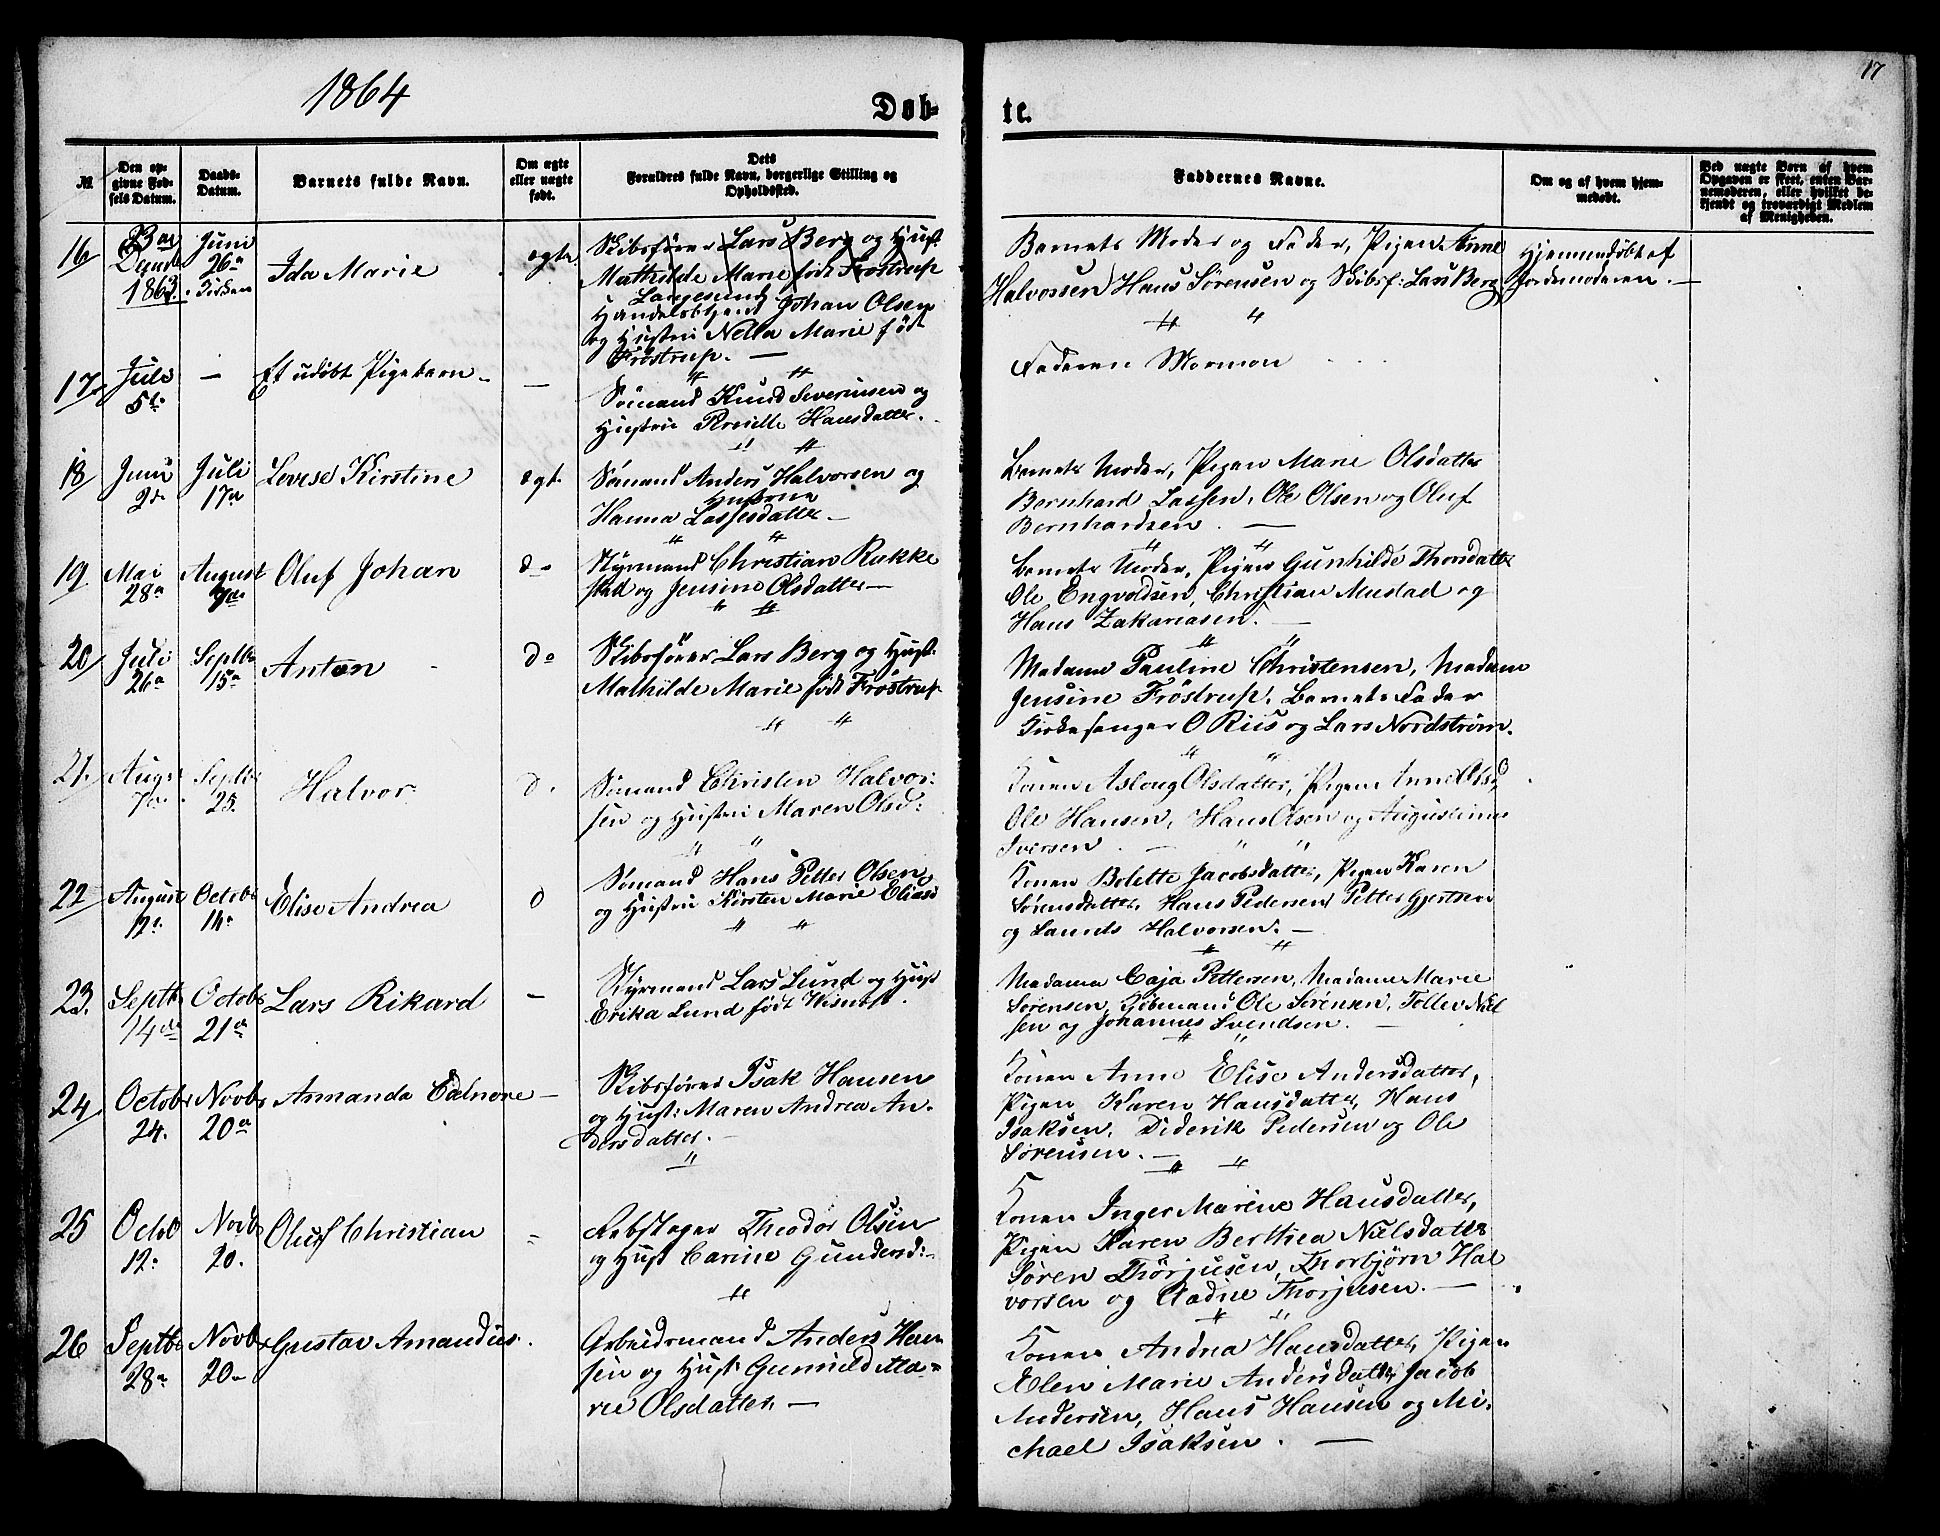 1864
17
Døb-
te.
№
Den op-
givne Fød-
sels Datum.
Daabs-
Datum.
Barnets fulde Navn.
Om ægte
eller uægte
født.
Dets
Forældres fulde Navn, borgerlige Stilling og
Opholdssted.
Faddernes Navne.
Om og af hvem hjem-
medøbt.
Ved uægte Børn af hvem
Opgaven er skeet, enten Bar-
nemoderen, eller hvilket be-
kjendt og troværdigt Medlem
af Menigheden.
16
1863
Juni
26de
Kirken
Ida Marie
ægte
Skibsfører Lars Berg og Hust
Mathilde Marie født Frøstrup
Langesund
Johan Olsen
og Hustru Nella Marie født
Frøstrup.
Barnets Moder og Fader, Pigen Anne
Halvorsen Hans Sørensen og Skibsf: Lars Berg
Hjemmedøbt af
Jordemoderen.
17
Juli
5te
—
Et udøbt Pigebarn
—
Sømand Knud Severinsen og
Hustru Pernille Hansdatter.
Faderen Mormon
18
Juni
2de
Juli
17de
Lovise Kirstine
ægt.
Sømand Anders Halvorsen og
Hustrue
Hanna Lassesdatter
Barnets Moder, Pigen Marie Olsdatter
Bernhard Lassen, Ole Olsen og Oluf
Bernhardsen.
19
Mai
28de
August
7de
Oluf Johan
do
Styrmand Christian Rukke
stad og Jensine Olsdatter
Barnets Moder, Pigen Gunhilde Thorsdatter
Ole Engvoldsen, Christian Mustad og
Hans Zakariasen.
20
Juli
26de
Septbr
15de
Anton
do
Skibsfører Lars Berg og Hust:
Mathilde Marie født Frøstrup
Madame Pauline Christensen, Madam
Jensine Frøstrup, Barnets Fader
Kirkesanger O Riis og Lars Nordstrøm.
21.
Aug.
7de
Septbr
25.
Halvor
d.
Sømand Christen Halvor:
sen og Hustru Maren Olsd:
Konen Aslaug Olsdatter, Pigen Anne Olsd,
Ole Hansen, Hans Olsen og Augustinus
Iversen
22
August
12.
Octobr
14de
Elise Andrea
d
Sømand Hans Petter Olsen
og Hustru Kirsten Marie Eliasd
Konen Bolette Jacobsdatter, Pigen Karen
Sørensdatter, Hans Pedersen Petter Gjertsen
og Laurits Halvorsen.
23.
Septbr
14de
Octobr
21de
Lars Rikard
—
Styrmand Lars Lund og Hust
Erika Lund født
Madame Caja Pettersen, Madame Marie
Sørensen, Kjøbmand Ole Sørensen, Tollev Niel
sen og Johannes Svendsen.
24
Octobr
24.
Novbr
20de
Amanda Edelnore
—
Skibsfører Isak Hansen
og Hust: Maren Andrea An-
dersdatter.
Konen Anne Elise Andersdatter,
Pigen Karen Hansdatter, Hans
Isaksen, Diderik Pedersen og Ole
Sørensen.
25
Octob
12.
Novbr
20.
Oluf Christian
Rebslager Theodor Olsen
og Hust Carine Gundersd:
Konen Inger Marine Hansdatter,
Pigen Karen Berthea Nielsdatter
Søren Thorjusen, Thorbjørn Hal
vorsen og Aadne Thorjusen.
26
Septbr
28de
Novbr
20de
Gustav Amandius.
Arbeidsmand Anders Han
sen og Hust Gunnild Ma-
rie Olsdatter.
Konen Andrea Hansdatter, Pigen
Elen Marie Andersdatter, Jacob
Andersen, Hans Hansen og Mi-
chael Isaksen.